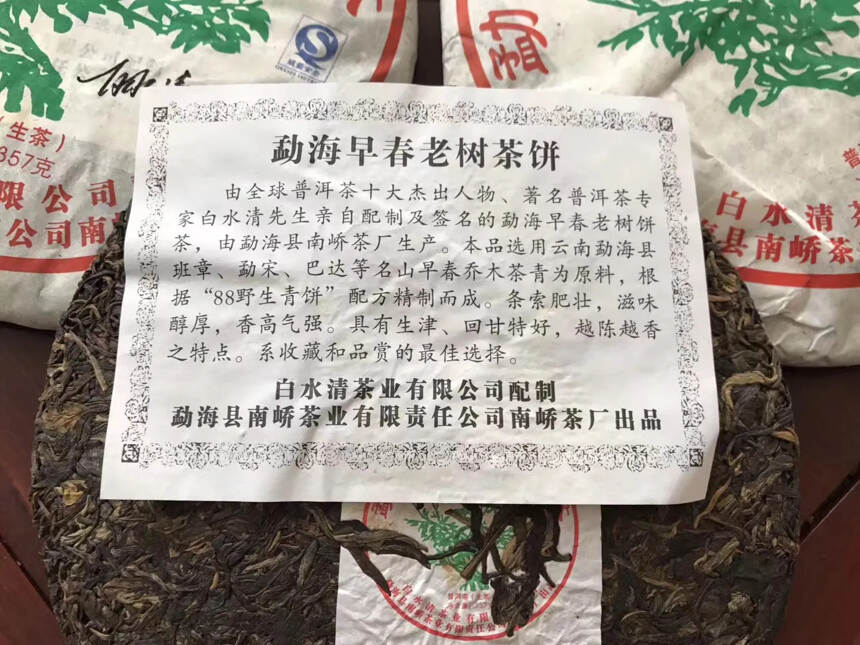 (生茶)
357克
勐海早春老树茶饼
由全球普洱茶十大杰出人物、著名普洱茶专
家白水清先生亲自配制及签名的勐海早春老树饼
茶，由勐海县南峤茶厂生产。本品选用云南勐海县
班章、勐宋、巴达等名山早春乔木茶青为原料，根
据“88野生青饼”配方精制而成。条索肥壮，滋味
醇厚，香高气强。具有生津、回甘特好，越陈越香
之特点。系收藏和品赏的最佳选择。
白水清茶业有限公司配制
勐海县南峤茶业有限责任公司南峤茶厂出品
有限公司
公司南
白水清茶
县南峤茶
白水清茶业有限
勐海县南峤茶业有限责任公司